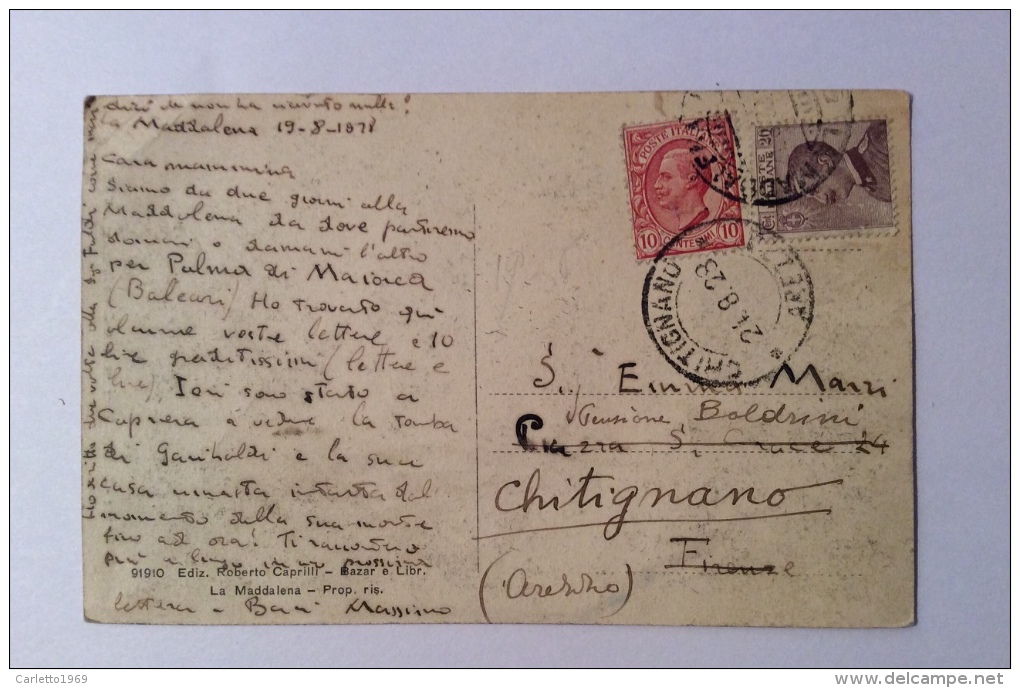 La Maddalena 19-8-
Cara mammina
Siamo da due giorni alla
Maddalena da dove partiremo
domani o domani l'altro
per Palma di Maiorca
(Baleari) Ho trovato qui
vostre lettere e 10
lire graditissimi (lettere e
lire). Ieri sono stato a
Caprera a vedere la tomba
di Garibaldi e la sua
casa rimasta intatta dal
momento della sua morte
fino ad ora! Ti racconterò
più a lungo in una prossima
91910 Ediz. Roberto Caprilli – Bazar e Libr.
La Maddalena – Prop. ris.
lettera - Baci Massimo
Ho scritto due volte alla
dirti non ha ricevuto nulla!
POSTE ITALIANE
10 CENTESIMI 10
20
CHITIGNANO
24.8.23
AREZZO
S. Emma Marri
Pensione Boldrini
Piazza S. Croce 24
Chitignano
Firenze
(Arezzo)
Carletto1969
delcampe.net